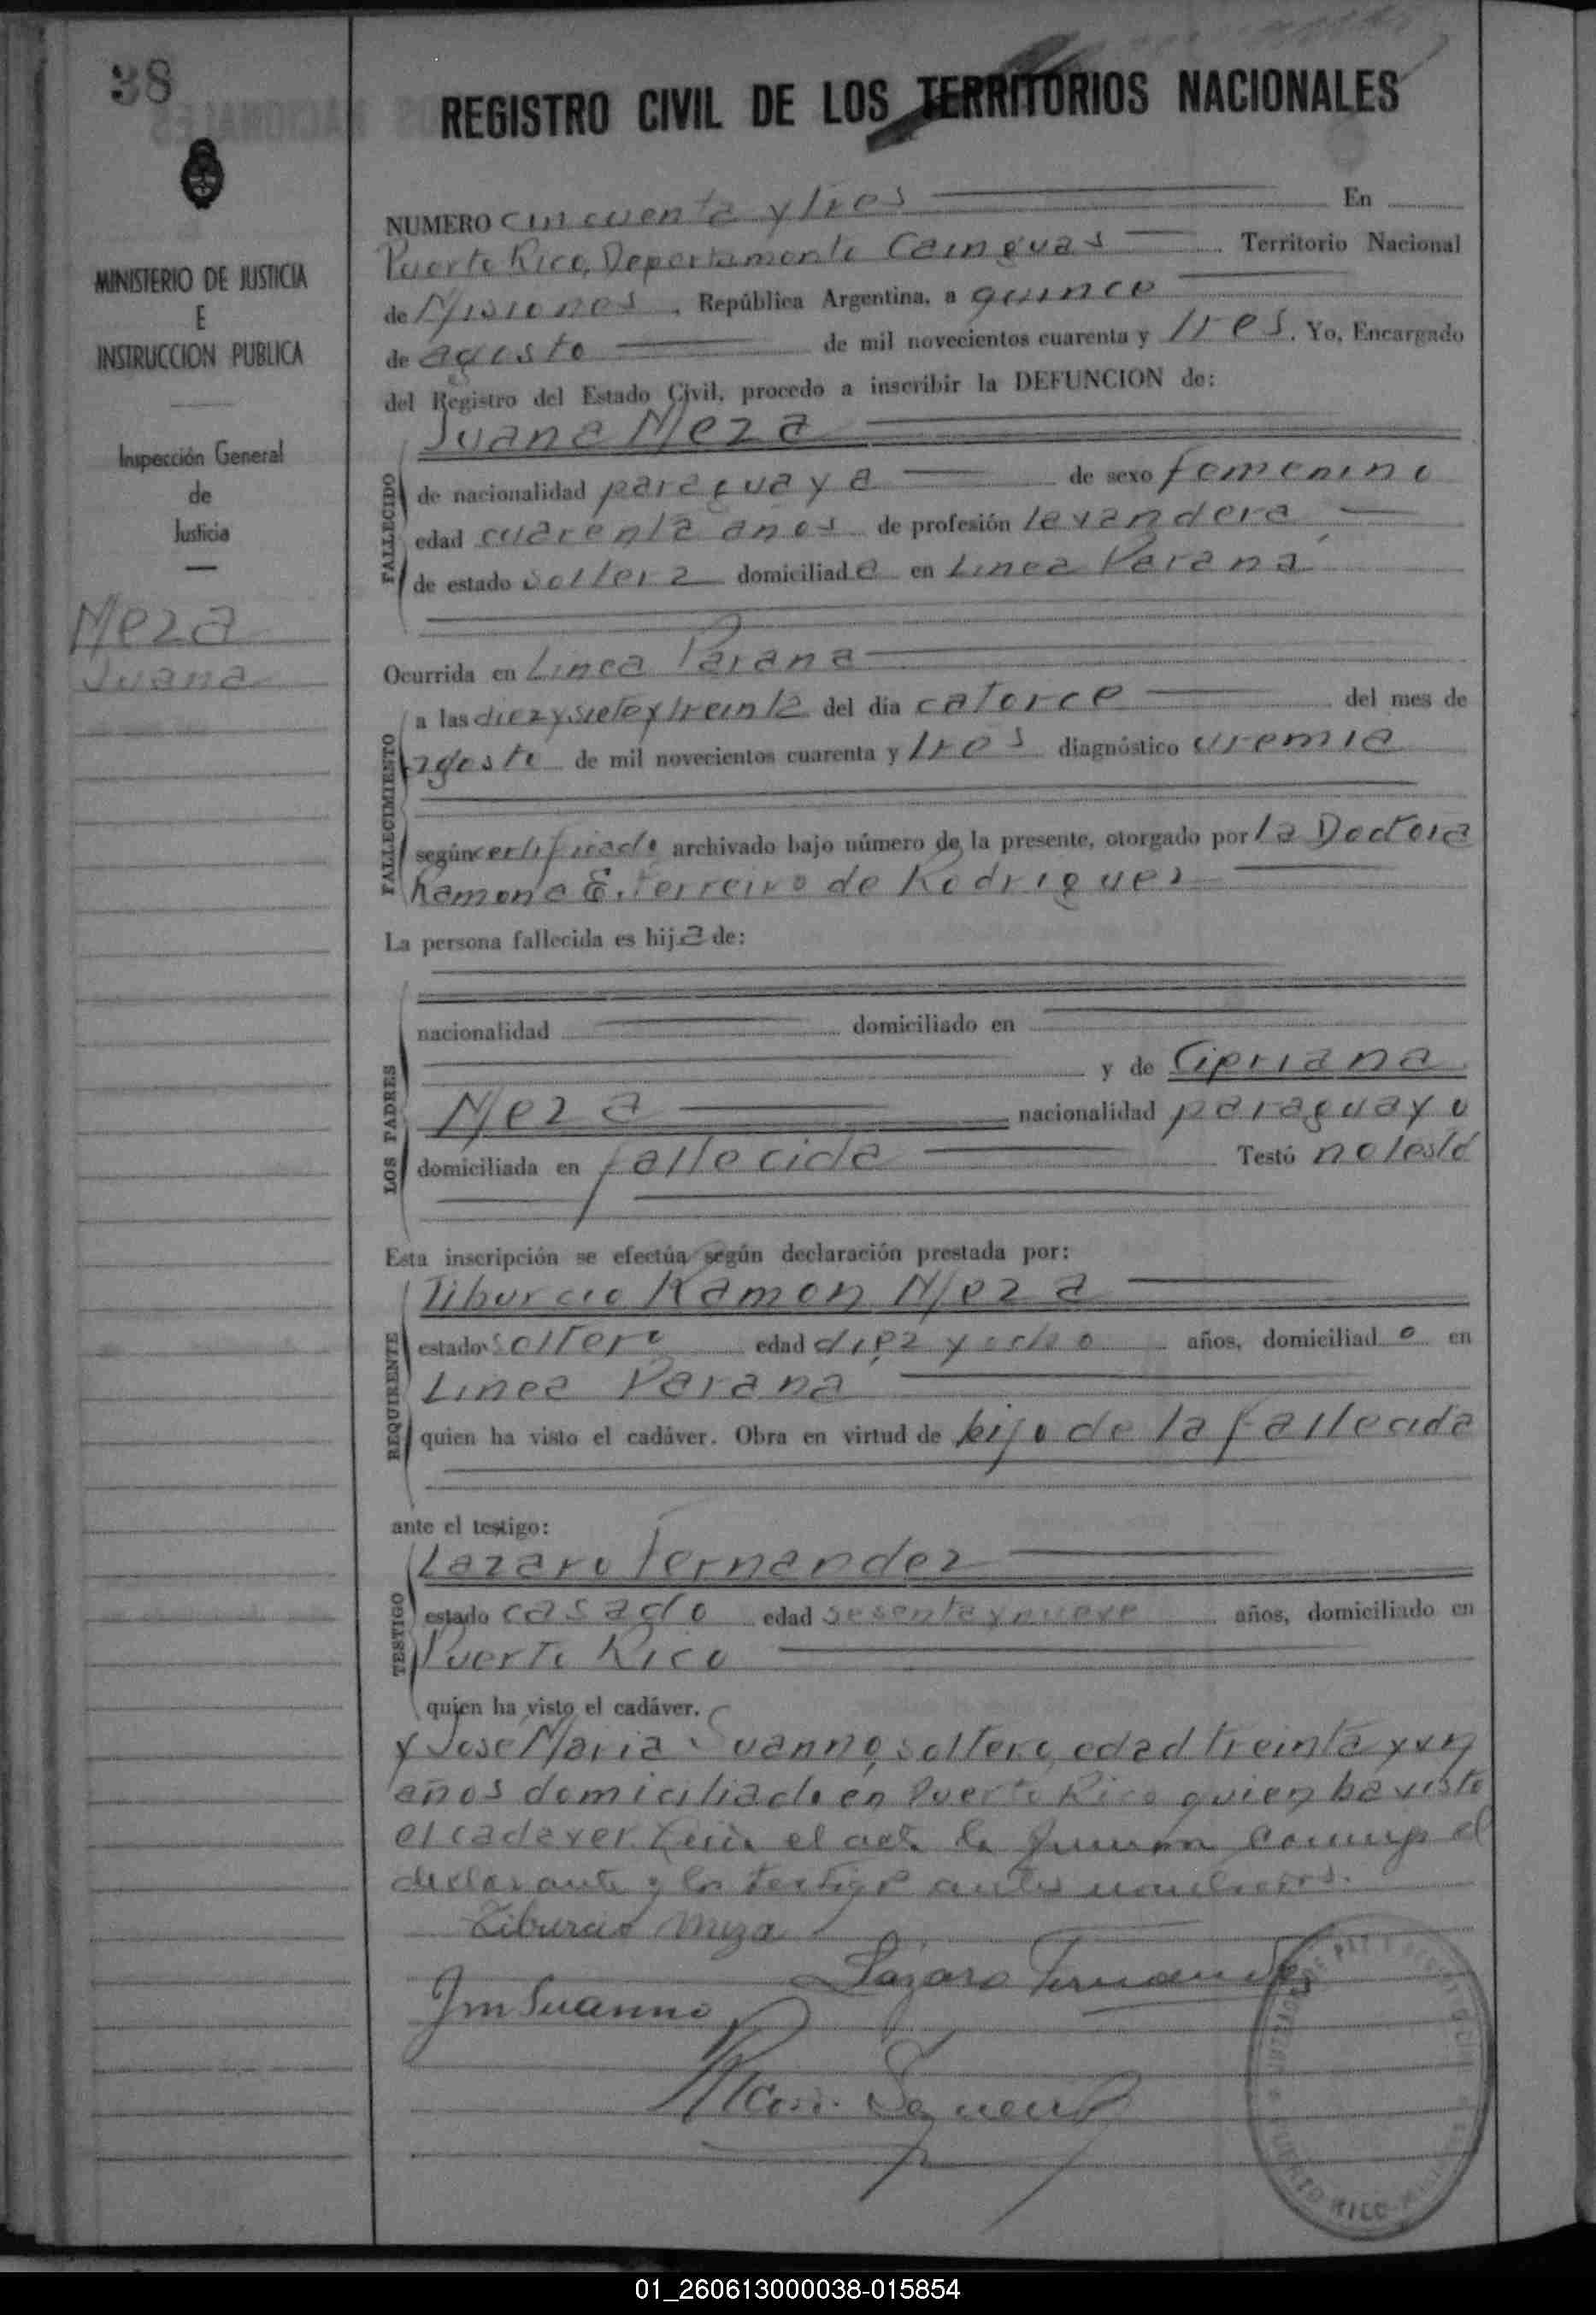 38
REGISTRO CIVIL DE LOS TERRITORIOS NACIONALES
MINISTERIO DE JUSTICIA
E
INSTRUCCION PUBLICA
Inspección General
de
Justicia
Meza
Juana
NUMERO cincuenta y tres En
Puerto Rico, Departamento Cainguas Territorio Nacional
de Misiones, República Argentina, a quince
de agosto de mil novecientos cuarenta y tres. Yo, Encargado
del Registro del Estado Civil, procedo a inscribir la DEFUNCION de:
Juana Meza
FALLECIDO
de nacionalidad paraguaya de sexo femenino
edad cuarenta años de profesión lavandera
de estado soltera domiciliada en Linea Paraná
Ocurrida en Linea Parana
FALLECIMIENTO
a las diez y siete y treinta del dia catorce del mes de
agosto de mil novecientos cuarenta y tres diagnóstico uremia
según certificado archivado bajo número de la presente, otorgado por la Doctora
Ramona E. Ferreiro de Rodriguez
La persona fallecida es hija de:
LOS PADRES
nacionalidad domiciliado en
y de Cipriana
Meza nacionalidad paraguayo
domiciliada en fallecida Testó no testó
Esta inscripción se efectúa según declaración prestada por:
REQUIRENTE
Tiburcio Ramon Meza
estado soltero edad diez y ocho años, domiciliado en
Linea Paraná
quien ha visto el cadáver. Obra en virtud de hijo de la fallecida
ante el testigo:
TESTIGO
Lazaro Fernandez
estado casado edad sesenta y nueve años, domiciliado en
Puerto Rico
quien ha visto el cadáver.
y Jose Maria Suanno, soltero, edad treinta y un
años domiciliado en Puerto Rico quien ha visto
el cadaver. el acta la conmigo el
declarante y los testigos antes
Tiburcio Meza
Lázaro Fernandez
Jm Suanno
PUERTO RICO
01_260613000038-015854